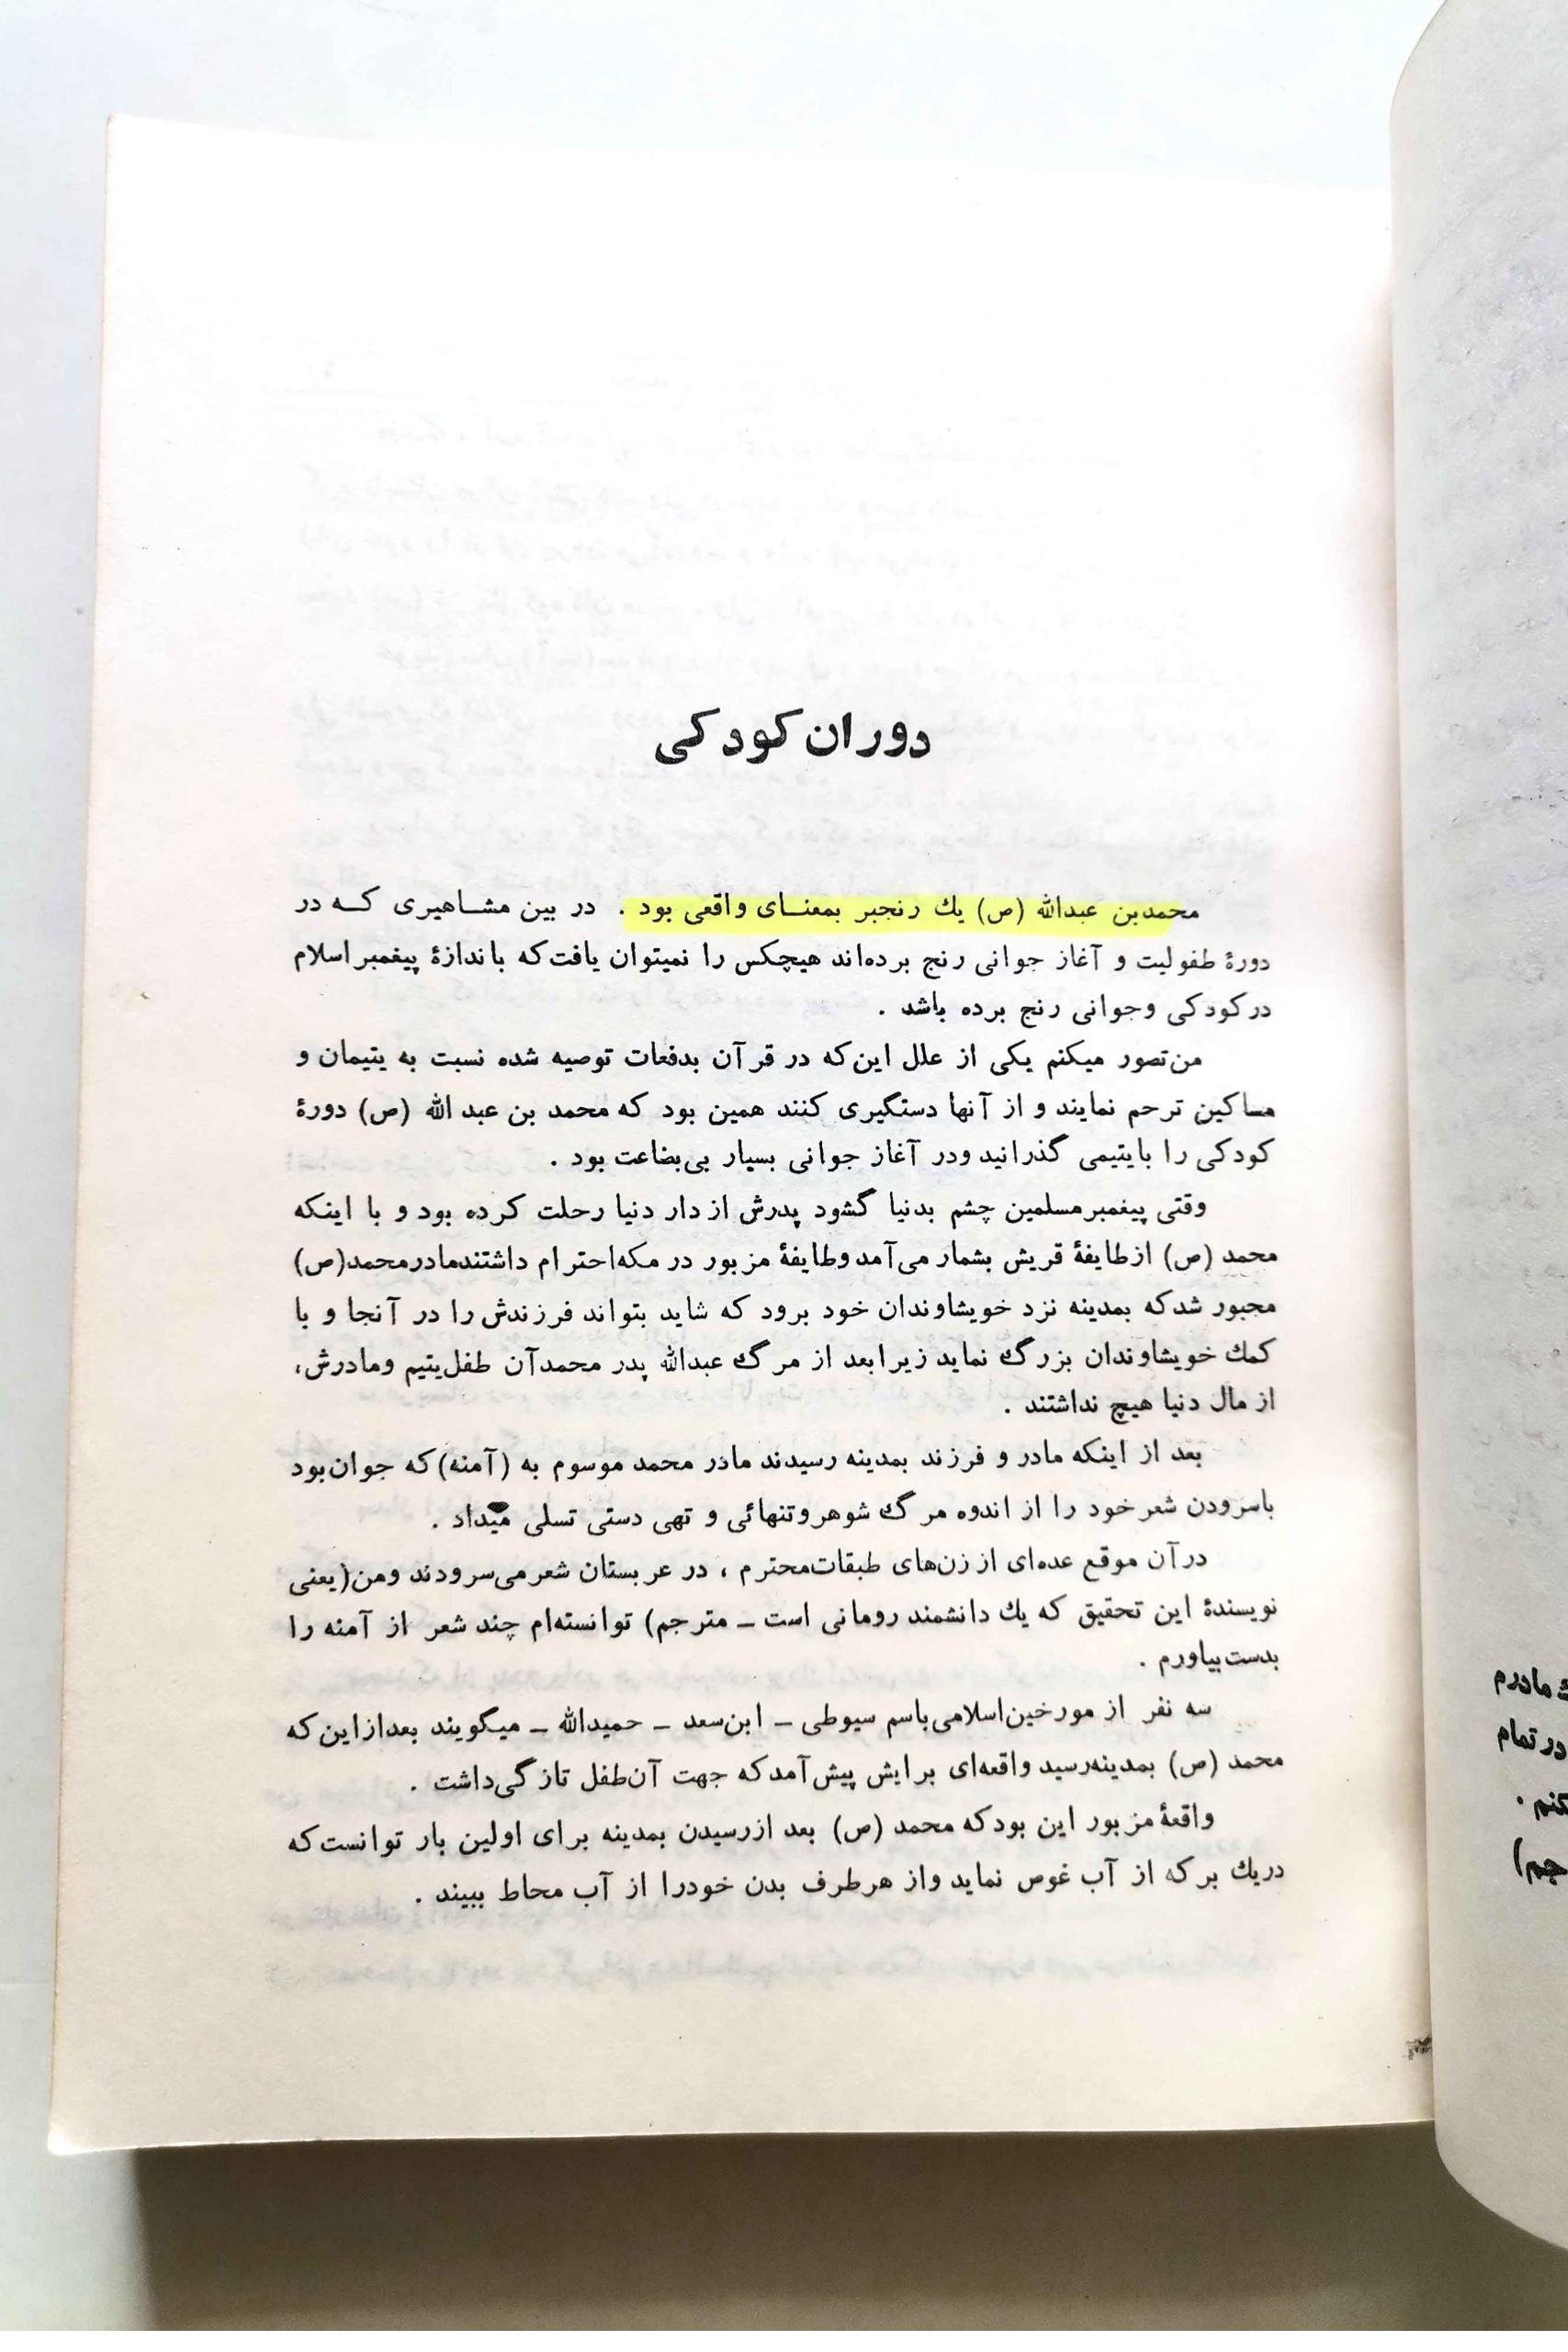 دوران کودکی
محمدبن عبدالله (ص) یك رنجبر بمعنـای واقعی بود . در بین مشـاهیری کـه در
دورهٔ طفولیت و آغاز جوانی رنج برده‌اند هیچکس را نمیتوان یافت‌که باندازهٔ پیغمبر اسلام
در کودکی وجوانی رنج برده باشد .
من‌تصور میکنم یکی از علل این‌که در قرآن بدفعات توصیه شده نسبت به یتیمان و
مساکین ترحم نمایند و از آنها دستگیری کنند همین بود که محمد بن عبد الله (ص) دورهٔ
کودکی را بایتیمی گذرانید ودر آغاز جوانی بسیار بی‌بضاعت بود .
وقتی پیغمبرمسلمین چشم بدنیا گشود پدرش از دار دنیا رحلت کرده بود و با اینکه
محمد (ص) ازطایفهٔ قریش بشمار می‌آمد وطایفهٔ مزبور در مکه‌احترام داشتندمادرمحمد(ص)
مجبور شدکه بمدینه نزد خویشاوندان خود برود که شاید بتواند فرزندش را در آنجا و با
کمك خویشاوندان بزرگ نماید زیرابعد از مرگ عبدالله پدر محمدآن طفل‌یتیم ومادرش،
از مال دنیا هیچ نداشتند .
بعد از اینکه مادر و فرزند بمدینه رسیدند مادر محمد موسوم به (آمنه)که جوان‌بود
باسرودن شعرخود را از اندوه مرگ شوهروتنهائی و تهی دستی تسلی میداد .
در آن موقع عده‌ای از زن‌های طبقات‌محترم ، در عربستان شعرمی‌سرودند ومن(یعنی
نویسندهٔ این تحقیق که یك دانشمند رومانی است ـ مترجم) توانسته‌ام چند شعر از آمنه را
بدست‌بیاورم .
سه نفر از مورخین‌اسلامی‌باسم سیوطی ـ ابن‌سعد ـ حمیدالله ـ میگویند بعدازاین‌که
محمد (ص) بمدینه‌رسید واقعه‌ای برایش پیش‌آمدکه جهت آن‌طفل تازگی‌داشت .
واقعهٔ مزبور این بودکه محمد (ص) بعد ازرسیدن بمدینه برای اولین بار توانست‌که
دریك برکه از آب غوص نماید واز هرطرف بدن خودرا از آب محاط ببیند .
مادرم
در تمام